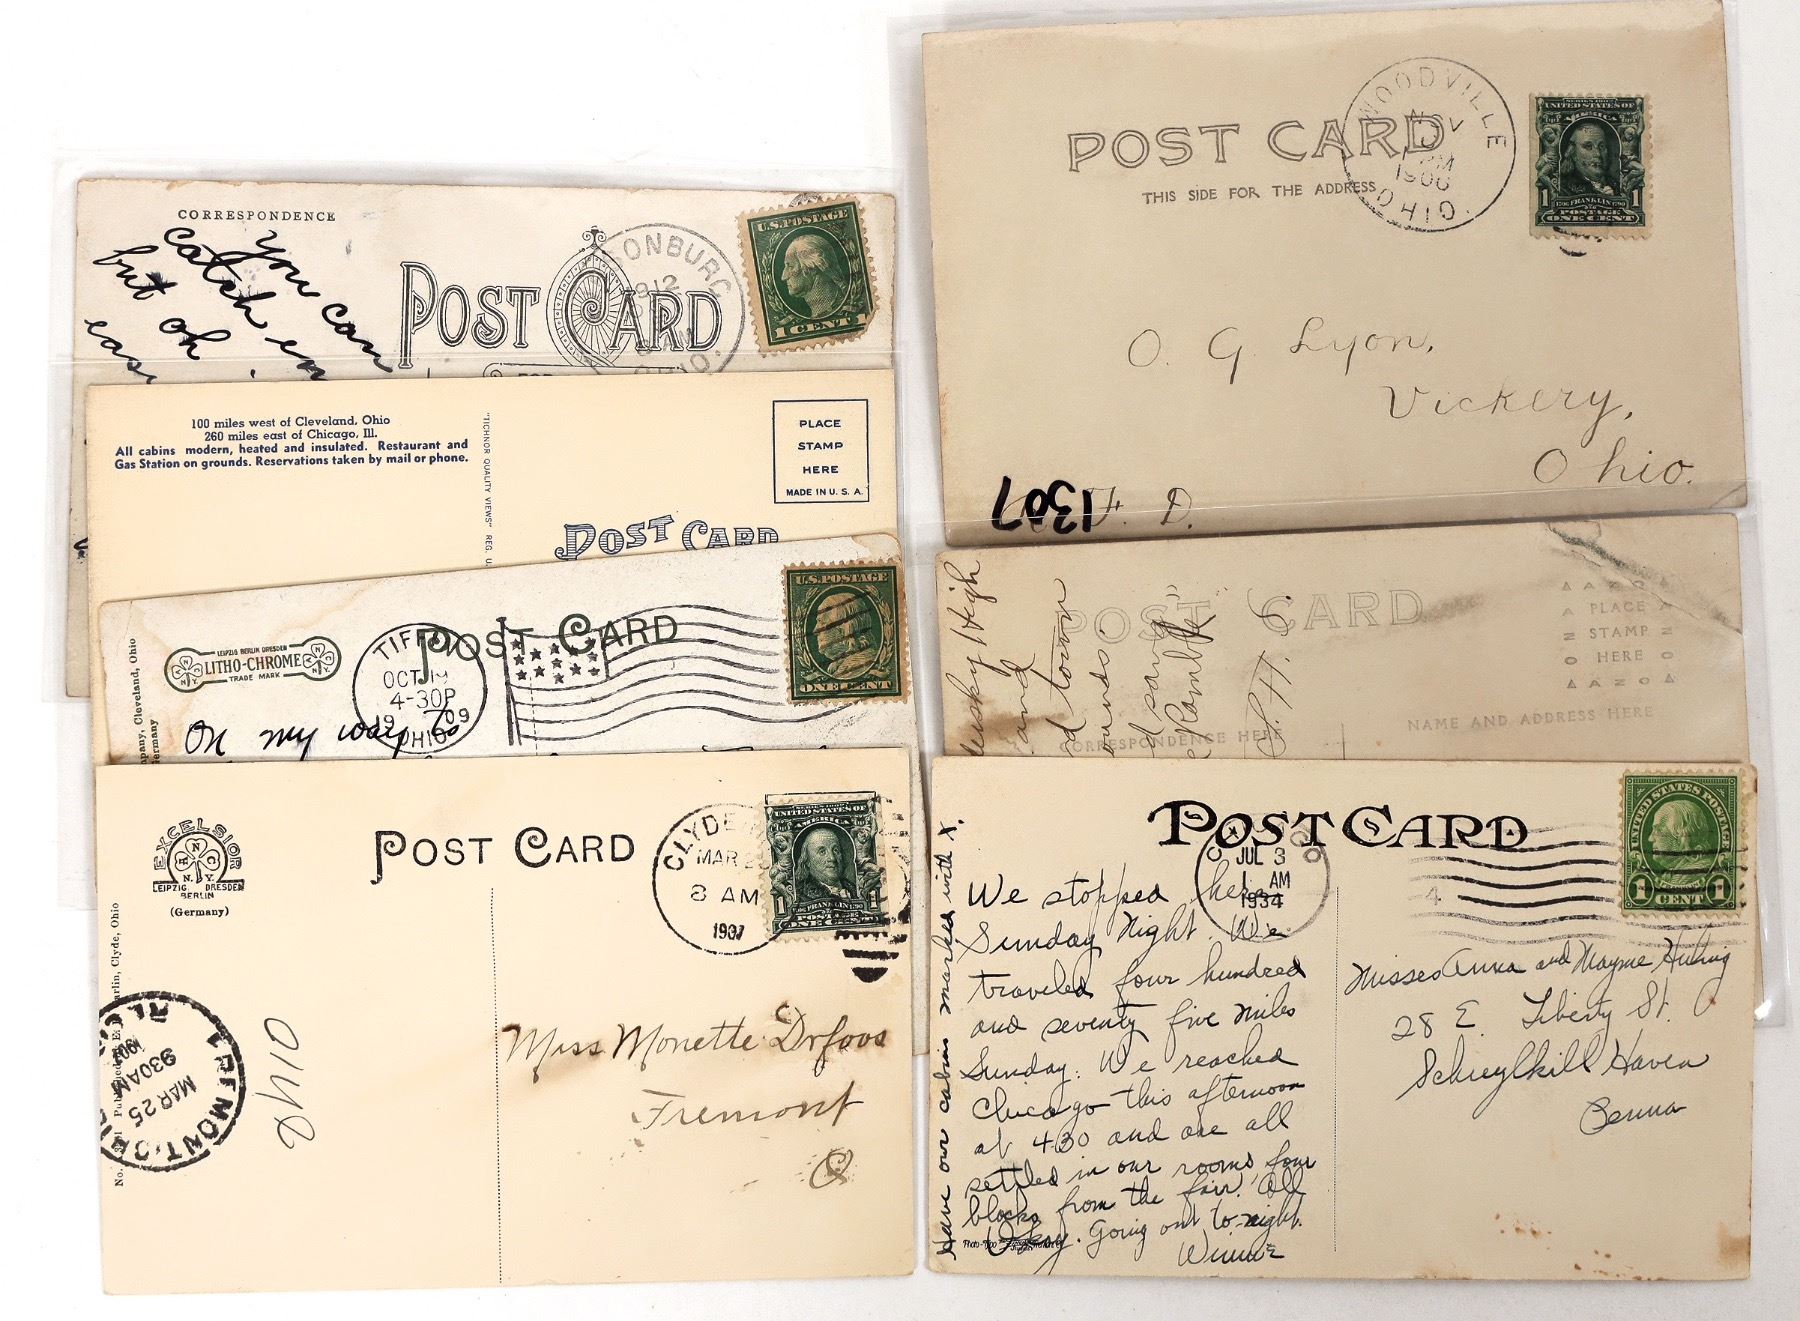 CORRESPONDENCE
You can
catch
but oh
POST CARD
SONBURG
1912
OHIO.
U.S. POSTAGE
1 CENT 1
100 miles west of Cleveland, Ohio
260 miles east of Chicago, Ill.
All cabins modern, heated and insulated. Restaurant and
Gas Station on grounds. Reservations taken by mail or phone.
"TICHNOR QUALITY VIEWS" REG. U.
PLACE
STAMP
HERE
MADE IN U. S. A.
POST CARD
LEIPZIG BERLIN DRESDEN
LITHO-CHROME
TRADE MARK
N.Y.
pany, Cleveland, Ohio
Germany
POST CARD
OCT 19
4-30P
1909
OHIO
U.S. POSTAGE
ONE CENT
On my way to
EXCELSIOR
N.Y.
LEIPZIG DRESDEN
BERLIN
(Germany)
POST CARD
CLYDE
MAR 2
8 AM
1907
SERIES 1902
UNITED STATES OF
AMERICA
1 1
1706 FRANKLIN 1790
ONE CENT
arlin, Clyde, Ohio
FREMONT
MAR 25
930AM
1907
Miss Monette Drfoos
Fremont
O
POST CARD
THIS SIDE FOR THE ADDRESS
WOODVILLE
NOV
1906
OHIO
SERIES 1902
UNITED STATES OF
AMERICA
1 1
1706 FRANKLIN 1790
POSTAGE
ONE CENT
O. G. Lyon,
Vickery,
Ohio.
1307
F. D.
POST CARD
AZO
PLACE
STAMP
HERE
AZO
CORRESPONDENCE HERE
NAME AND ADDRESS HERE
High
and
town
POST CARD
JUL 3
1 AM
1934
4
UNITED STATES POSTAGE
1 CENT 1
Have our cabins marked with X.
We stopped here
Sunday Night. We
traveled four hundred
and seventy five miles
Sunday. We reached
Chicago this afternoon
at 430 and are all
settled in our rooms, four
blocks from the fair. All
Okay. Going out to-night.
Winnie
Misses Anna and Mayme
28 E. Liberty St.
Schuylkill Haven
Penna